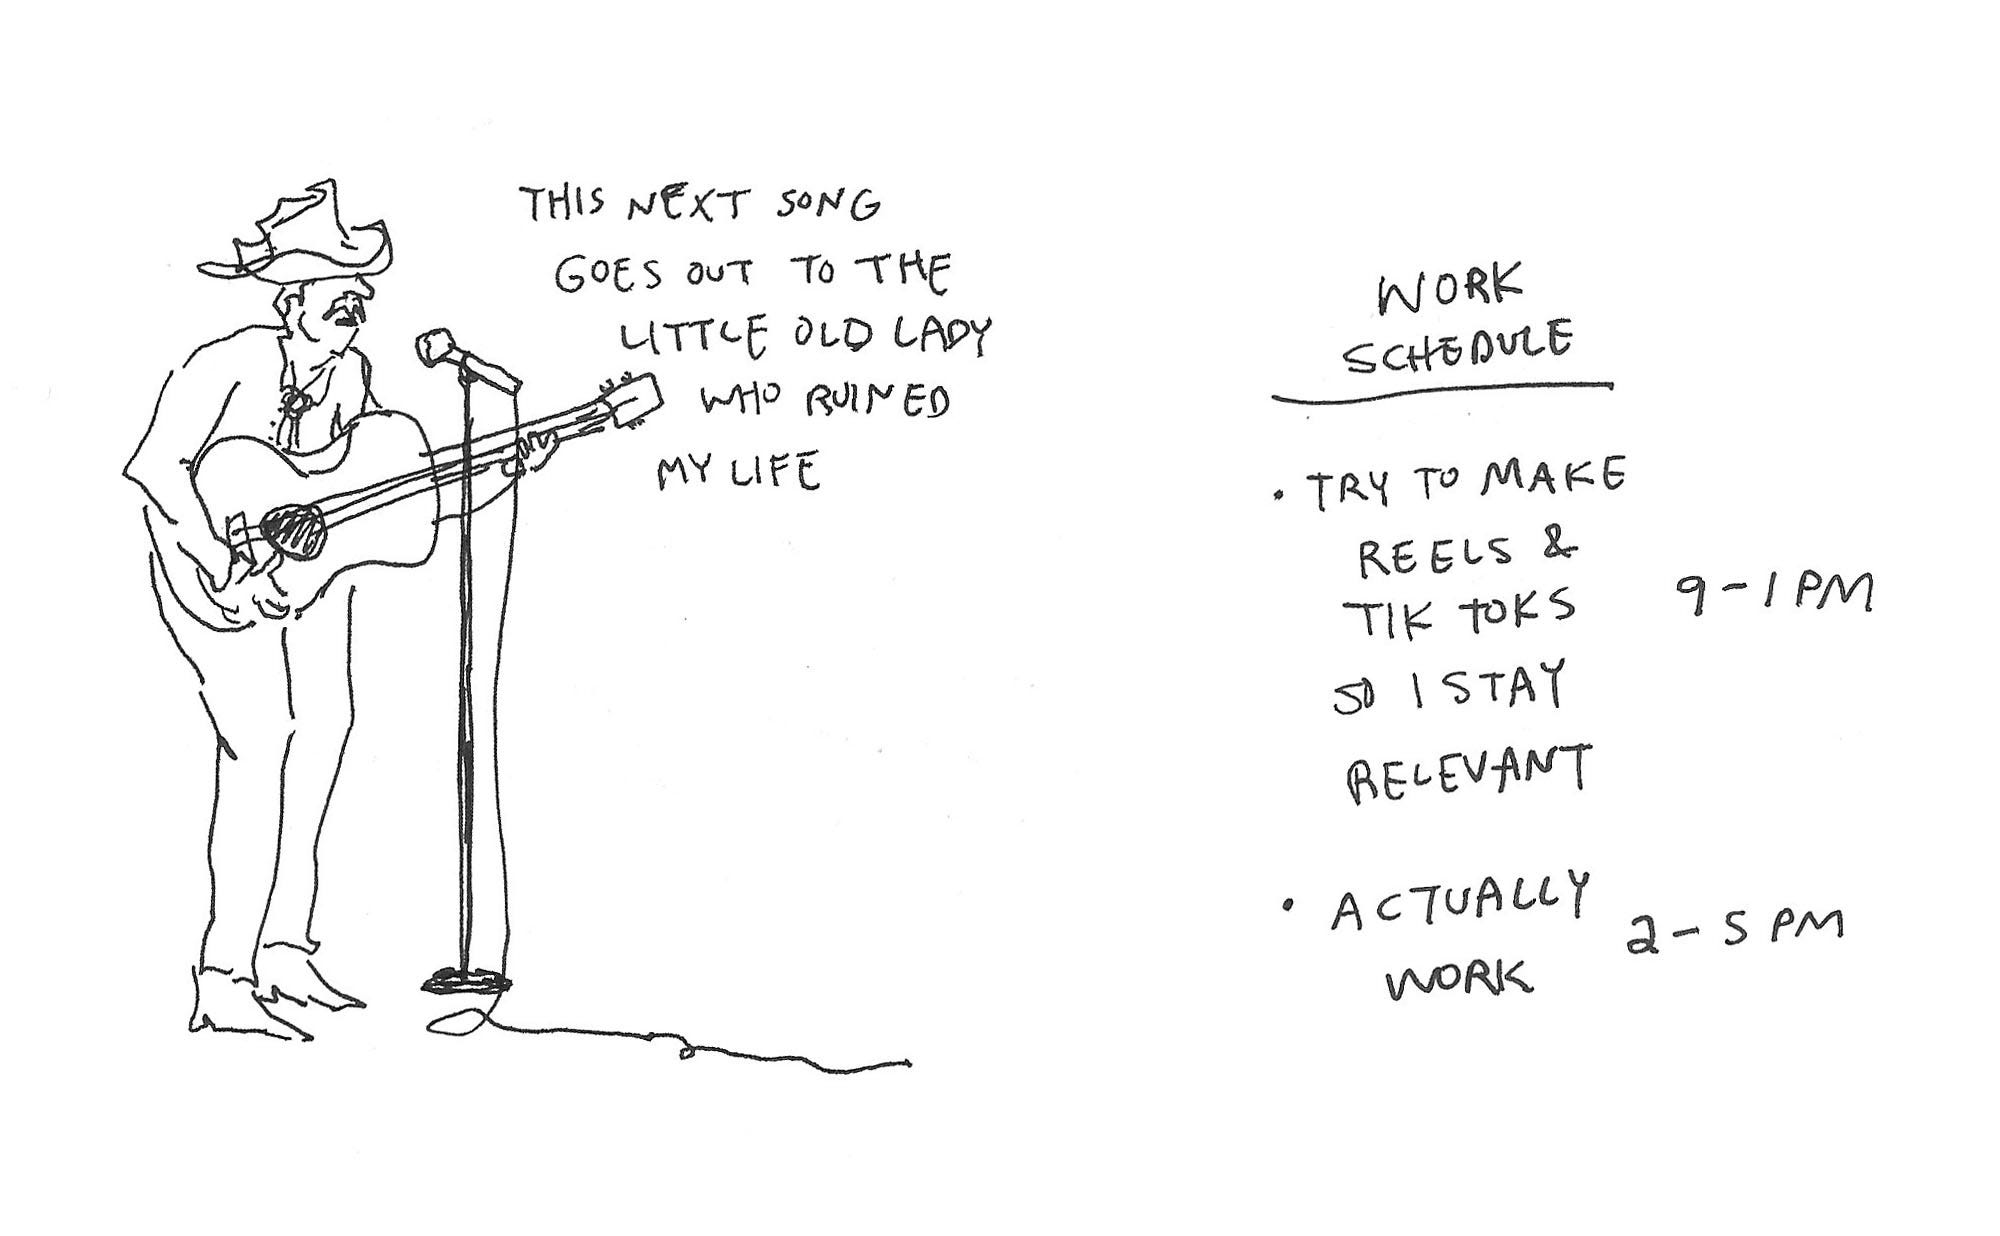 THIS NEXT SONG
GOES OUT TO THE
LITTLE OLD LADY
WHO RUINED
MY LIFE
WORK
SCHEDULE
• TRY TO MAKE
REELS &
TIK TOKS
SO I STAY
RELEVANT
9-1 PM
• ACTUALLY
WORK
2-5 PM